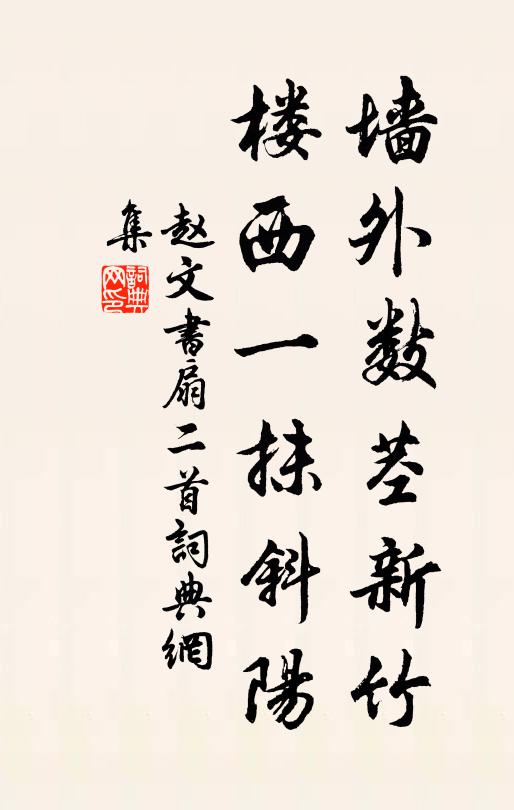 墙外数茎新竹
楼西一抹斜陽
赵文書扇二首詞典網
集
詞典
网印